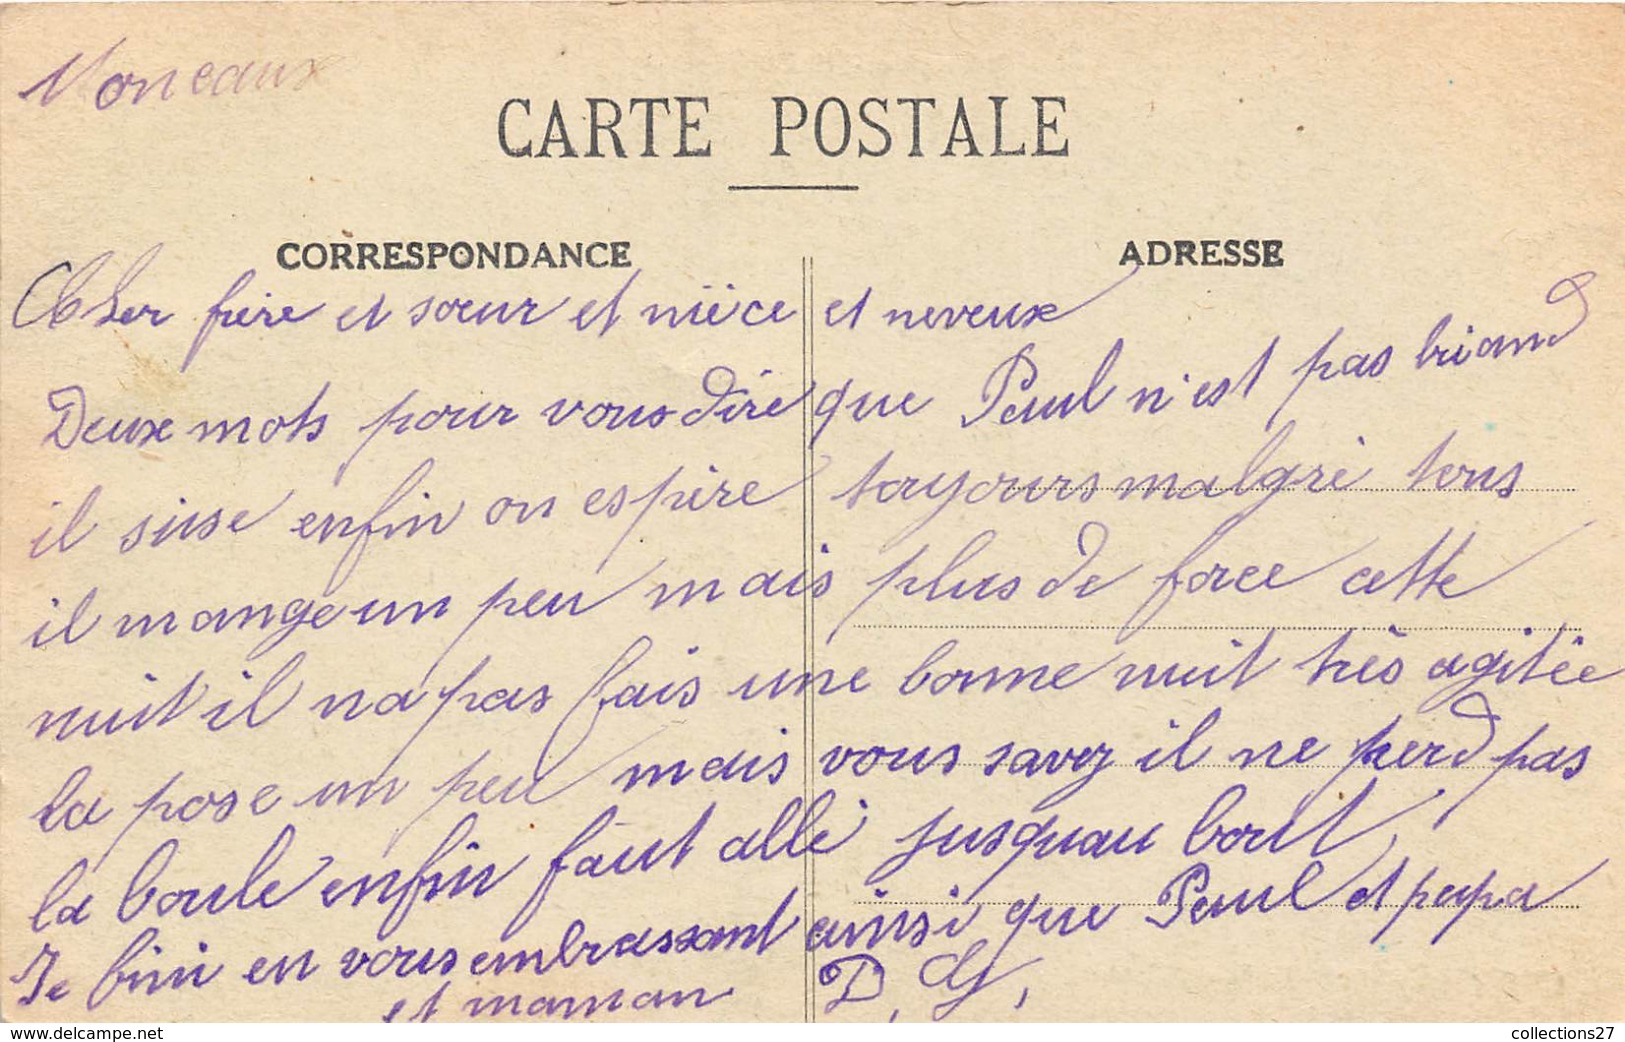 Moneaux
CARTE POSTALE
CORRESPONDANCE
ADRESSE
Cher frère et sœur et nièce et neveux
Deux mots pour vous dire que Paul n'est pas briand
il suse enfin on espère toujours malgré tous
il mange un peu mais plus de force cette
nuit il na pas fais une bonne nuit très agitée
la pose un peu mais vous savez il ne perd pas
la boule enfin faut allé jusquau bout,
Je fini en vous embrassant ainsi que Paul et papa
et maman D. G,
https://www.delcampe.net
collections27